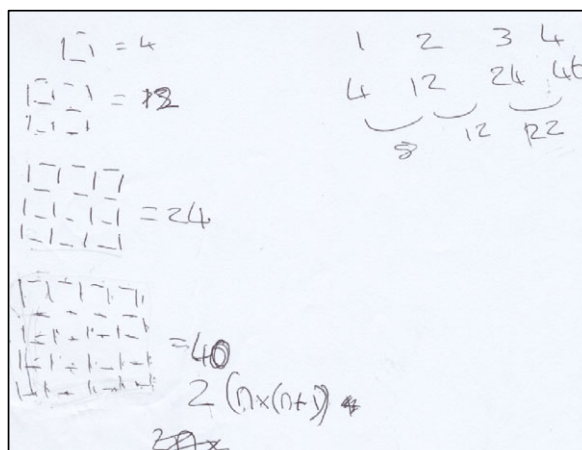 = 4
= 12
= 24
= 40
2 (n×(n+1))
1 2 3 4
4 12 24 46
8 12 22